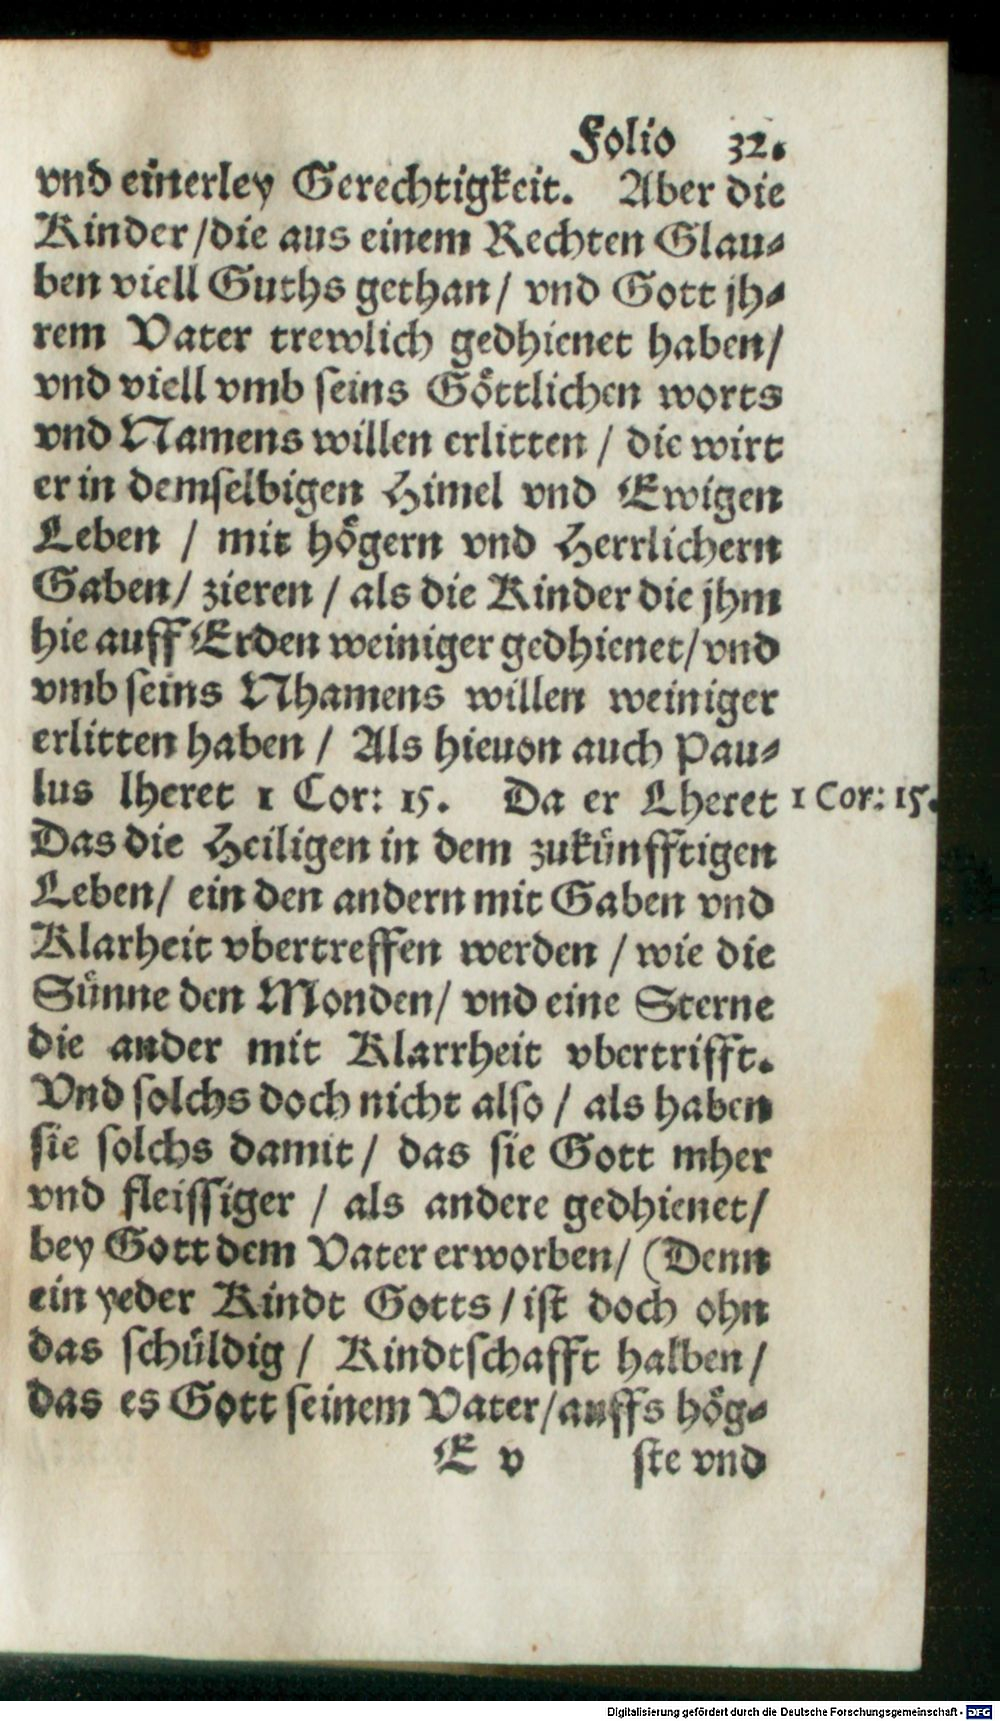 Folio 32.
vnd einerley Gerechtigkeit. Aber die
Kinder /die aus einem Rechten Glau⸗
ben viell Guths gethan / vnd Gott jh⸗
rem Vater trewlich gedhienet haben/
vnd viell vmb seins Göttlichen worts
vnd Namens willen erlitten / die wirt
er in demselbigen Himel vnd Ewigen
Leben / mit högern vnd Herrlichern
Gaben/ zieren / als die Kinder die jhm
hie auff Erden weiniger gedhienet/ vnd
vmb seins Nhamens willen weiniger
erlitten haben / Als hieuon auch Pau⸗
lus lheret 1 Cor: 15. Da er Lheret
1 Cor: 15.
Das die Heiligen in dem zukünfftigen
Leben/ ein den andern mit Gaben vnd
Klarheit vbertreffen werden / wie die
Sünne den Monden/ vnd eine Sterne
die ander mit Klarrheit vbertrifft.
Vnd solchs doch nicht also / als haben
sie solchs damit / das sie Gott mher
vnd fleissiger / als andere gedhienet/
bey Gott dem Vater erworben/ (Denn
ein yeder Kindt Gotts / ist doch ohn
das schüldig / Kindtschafft halben /
das es Gott seinem Vater/auffs hög⸗
E v ste vnd
Digitalisierung gefördert durch die Deutsche Forschungsgemeinschaft - DFG